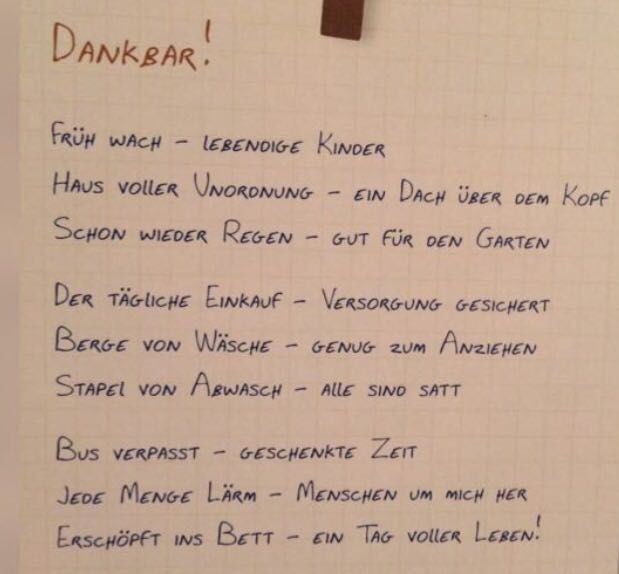 DANKBAR!
FRÜH WACH – LEBENDIGE KINDER
HAUS VOLLER UNORDNUNG – EIN DACH ÜBER DEM KOPF
SCHON WIEDER REGEN – GUT FÜR DEN GARTEN
DER TÄGLICHE EINKAUF – VERSORGUNG GESICHERT
BERGE VON WÄSCHE – GENUG ZUM ANZIEHEN
STAPEL VON ABWASCH – ALLE SIND SATT
BUS VERPASST – GESCHENKTE ZEIT
JEDE MENGE LÄRM – MENSCHEN UM MICH HER
ERSCHÖPFT INS BETT – EIN TAG VOLLER LEBEN!